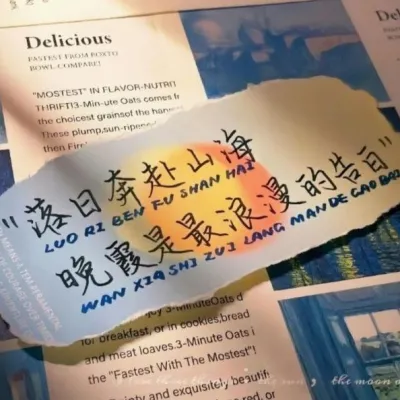 Delicious
FASTEST FROM BOXTO
BOWL-COMPARE!
"MOSTEST" IN FLAVOR-NUTRIT
THRIFT!3-Min-ute Oats comes fr
the choicest grainsof the harves
These plump,sun-ripen
then Fir
"落日奔赴山海
LUO RI BEN FU SHAN HAI
晚霞是最浪漫的告白"
WAN XIA SHI ZUI LANG MAN DE GAO BAI
enjoy 3-MinuteOats d
for breakfast, or in cookies,bread
and meat loaves.3-Minute Oats i
the "Fastest With The Mostest"!
and exquisitely beautif
the moon
Delic